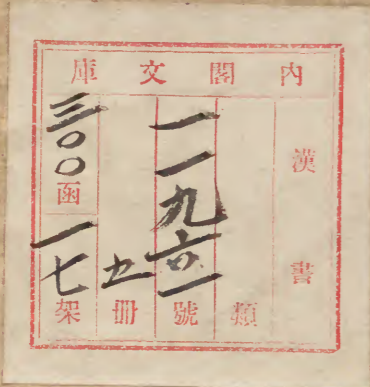 內閣文庫
漢書
類
一一九六一號
五冊
三〇〇函
一七架